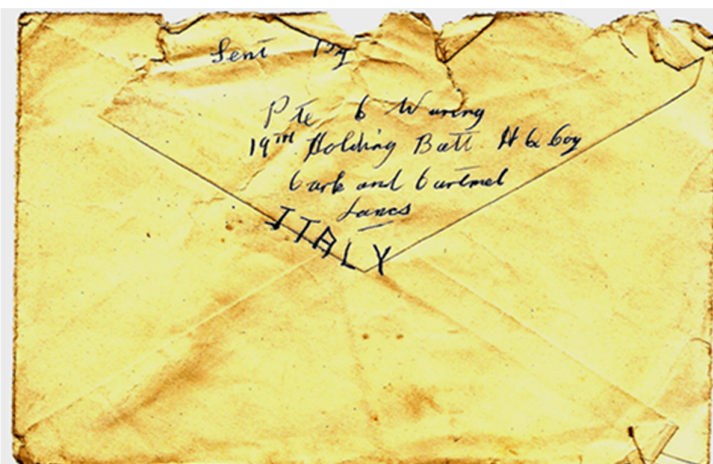 Sent By
Pte C Waring
19TH Holding Batt HQ Coy
Cark and Cartmel
Lancs
ITALY